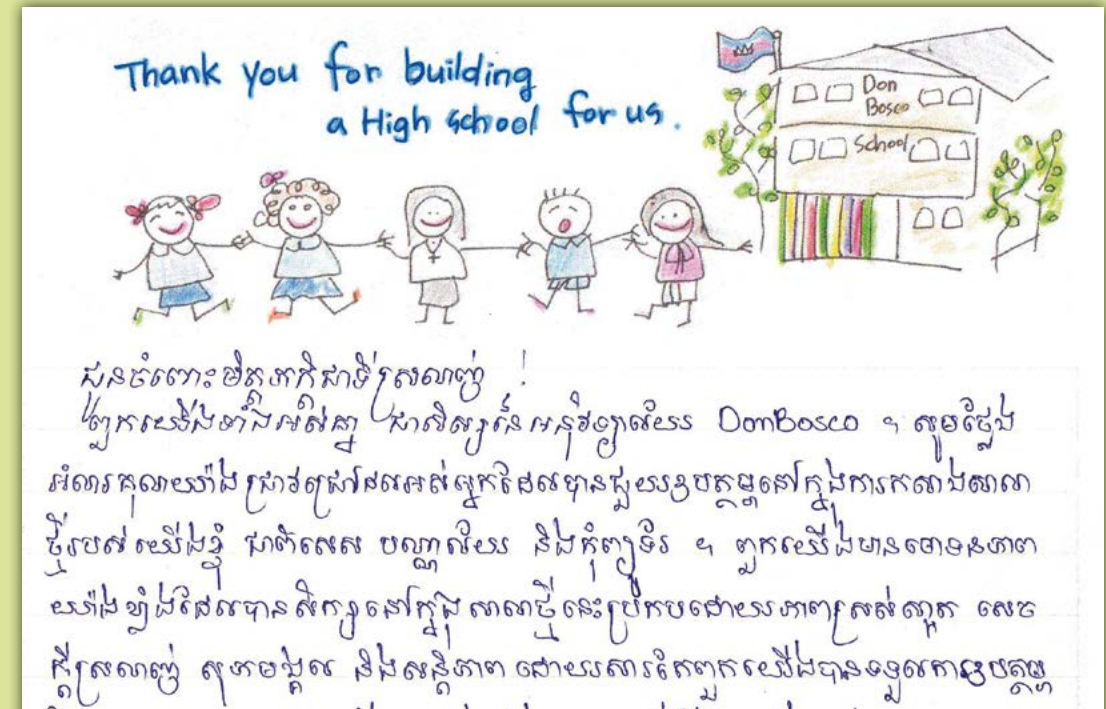 Thank you for building
a High school for us.
Don
Bosco
School
ជូនចំពោះមិត្តភក្តិជាទីស្រលាញ់ !
ពួកយើងទាំងអស់គ្នា ជាសិស្សនៃអនុវិទ្យាល័យ DonBosco ។ សូមថ្លែង
អំណរគុណយ៉ាងជ្រាវជ្រៅដល់អស់អ្នកដែលបានជួយឧបត្ថម្ភនៅក្នុងការកសាងសាលា
ថ្មីរបស់យើងខ្ញុំ ជាពិសេស បណ្ណាល័យ និងកុំព្យូទ័រ ។ ពួកយើងមានមោទនភាព
យ៉ាងខ្លាំងដែលបានសិក្សានៅក្នុងសាលាថ្មីនេះប្រកបដោយភាពស្រស់ស្អាត សេច
ក្តីស្រលាញ់ សុភមង្គល និងសន្តិភាព ដោយសារតែពួកយើងបានទទួលការឧបត្ថម្ភ